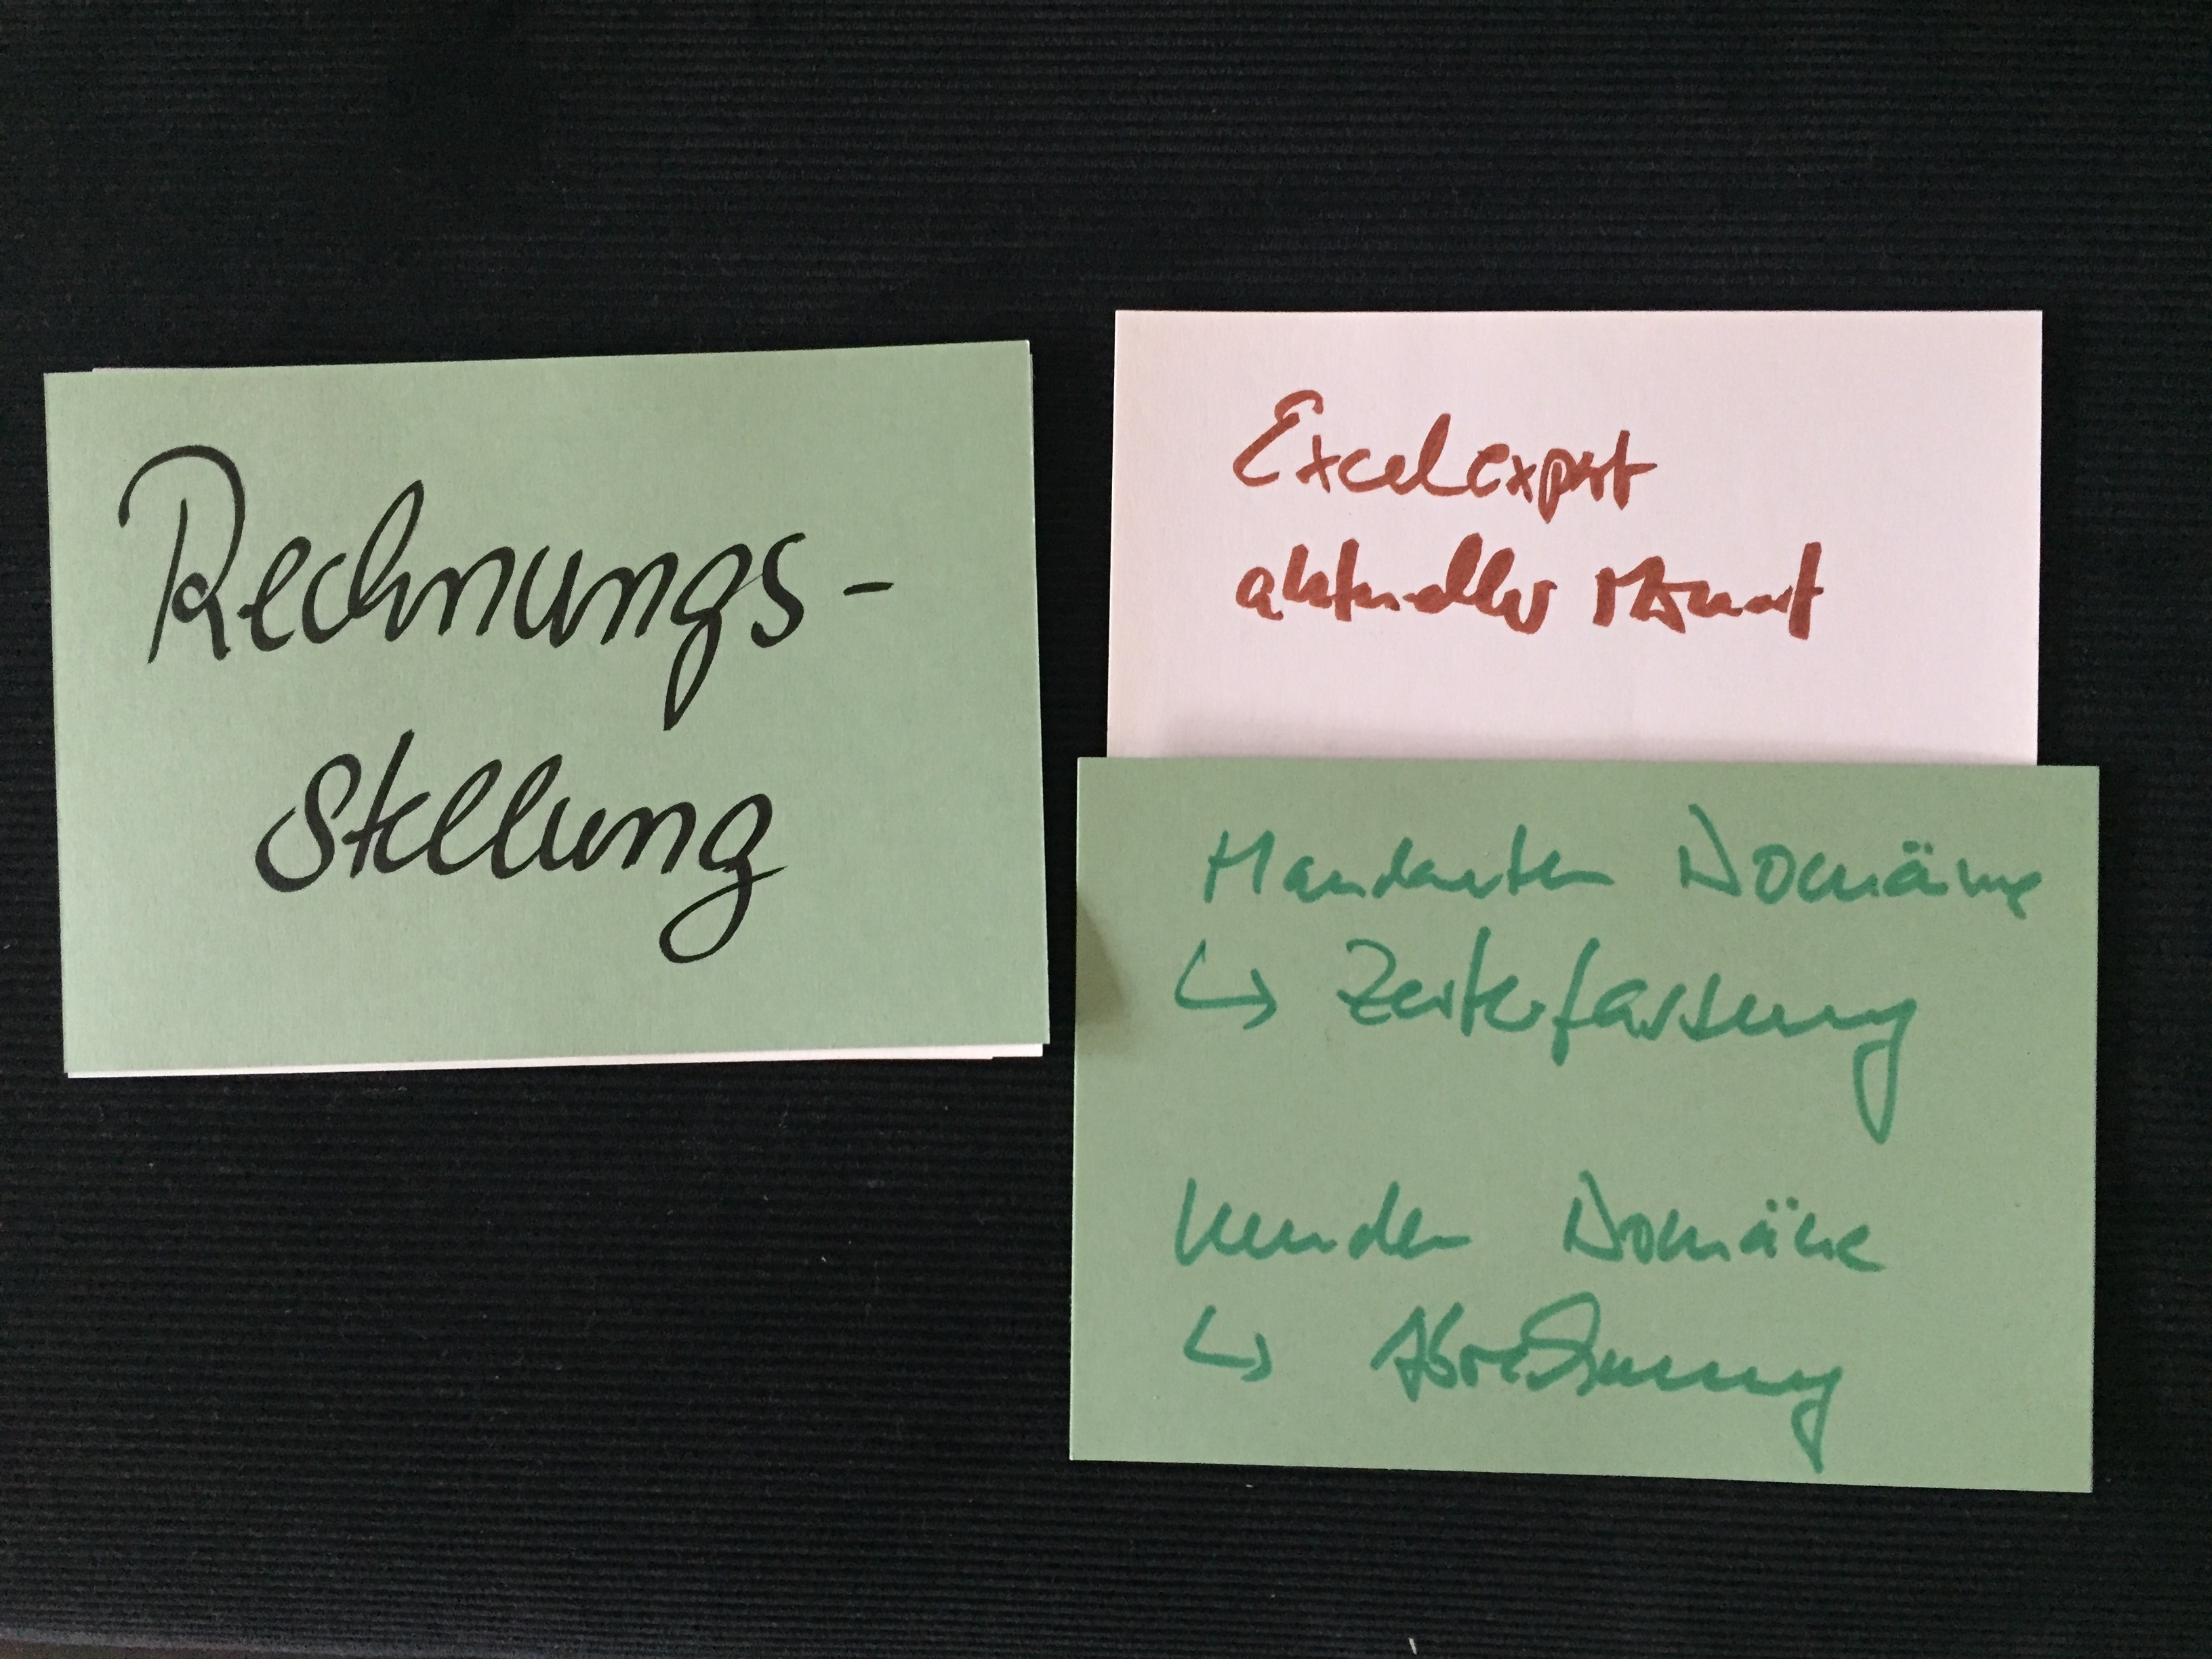 Rechnungs-
Stellung
Excelexport
aktueller Monat
Mandanten Domäne
↳ Zeiterfassung
Kunden Domäne
↳ Abrechnung